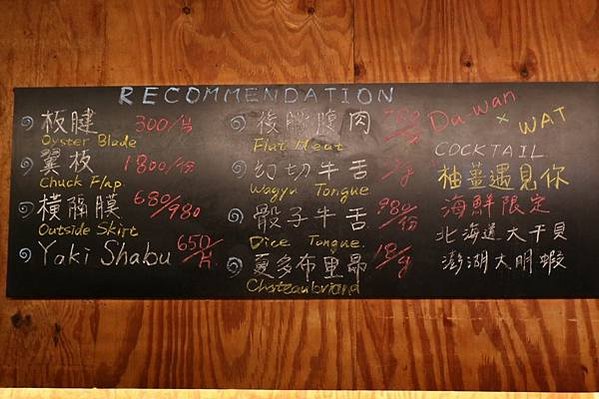 RECOMMENDATION
板腱 300/份
Oyster Blade
翼板 1800/份
Chuck Flap
橫膈膜 680/980
Outside Skirt
Yaki Shabu 650/片
後腰腹肉
Flat Meat
幻切牛舌
Wagyu Tongue
骰子牛舌 980/份
Dice Tongue
夏多布里昂 18/g
Chateaubriand
Du-wan × WAT
COCKTAIL
柚薑遇見你
海鮮限定
北海道大干貝
澎湖大明蝦